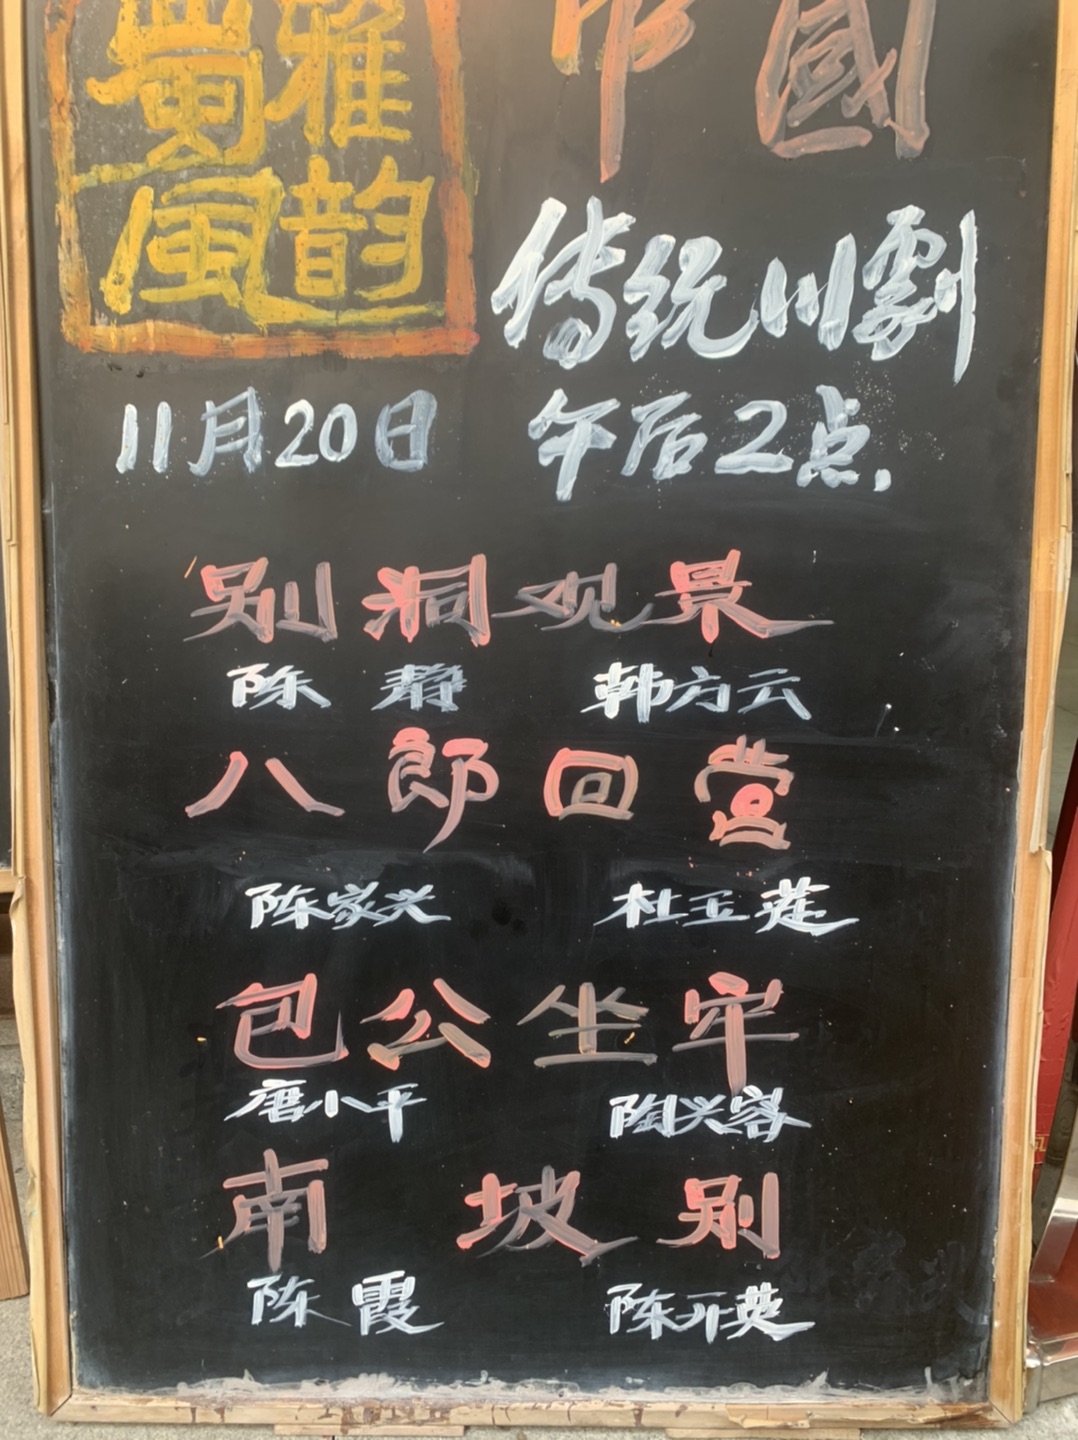 雅韵
蜀风
中國
传统川劇
11月20日 午后2点.
别洞观景
陈静 韩方云
八郎回营
陈家兴 杜玉莲
包公坐牢
唐小平 陶兴容
南坡别
陈霞 陈开英